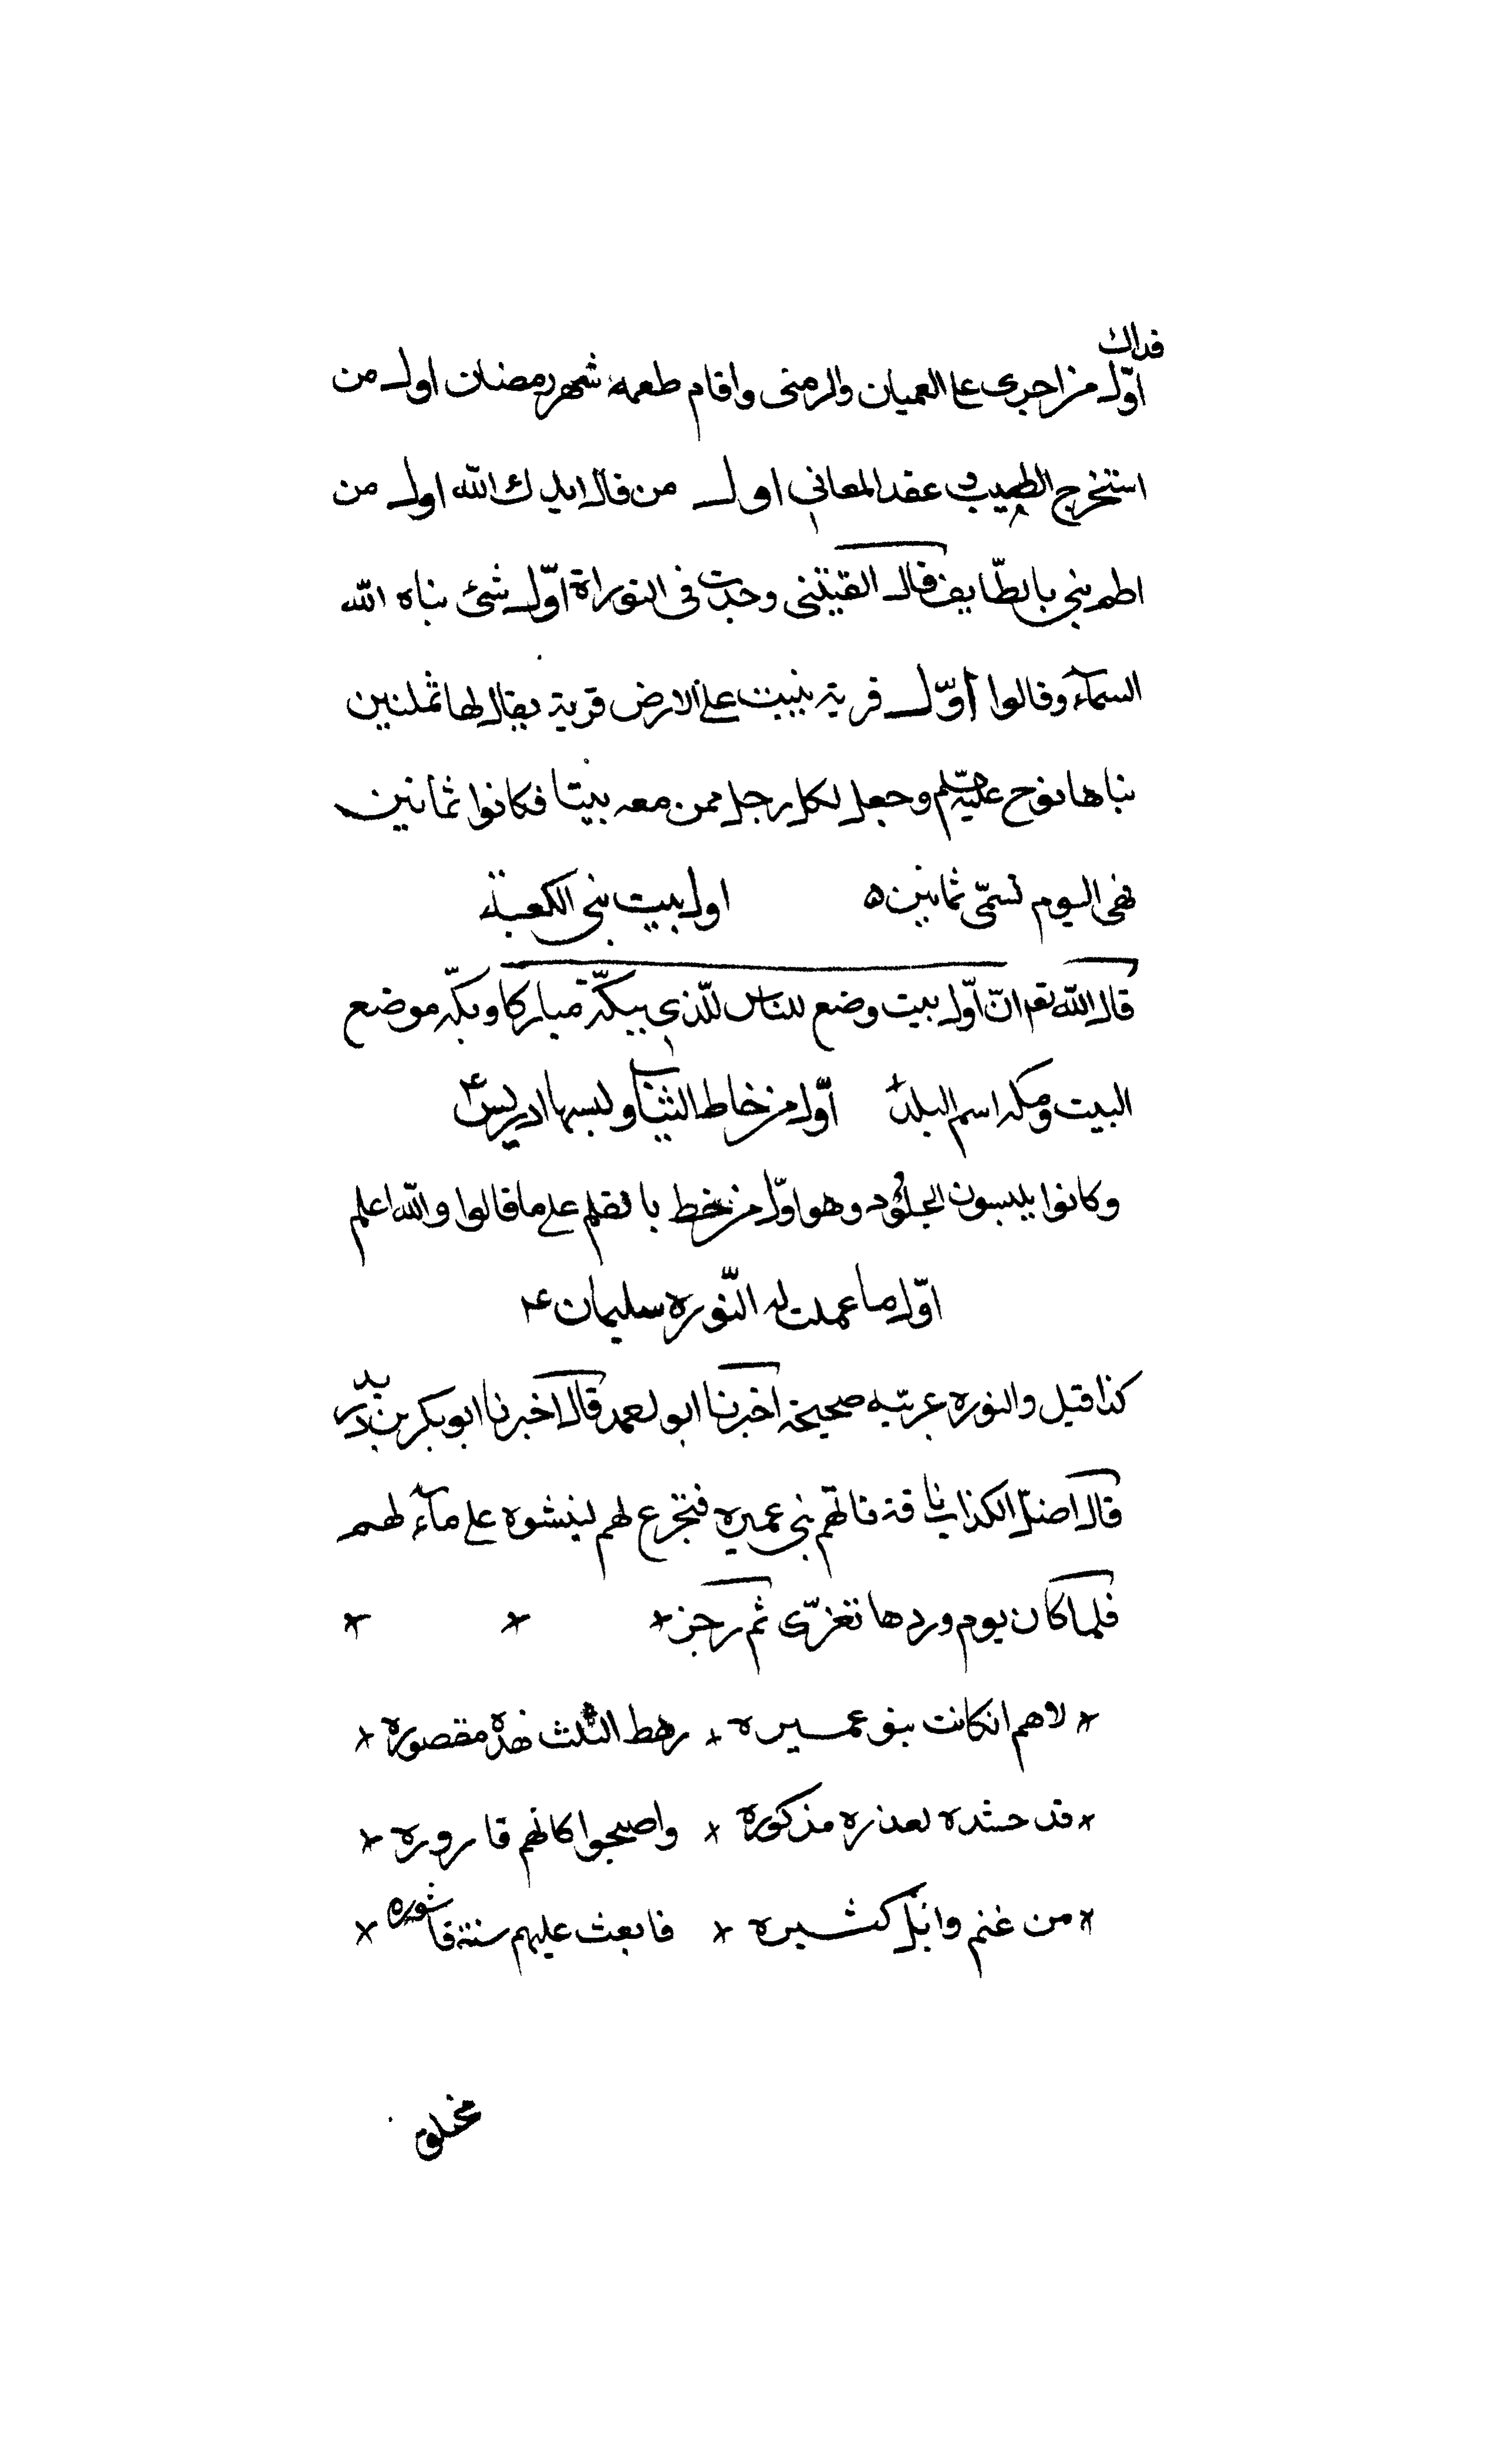 فداك
اوّل من اجرى على العميان والزمنى واقام طعمة شهر رمضان اول من
استخرج الطيب عقد المعاني اول من قال ايدك الله اول من
بالطّايف قال القتيني وجدت في التوراة اوّل شئ بناه الله
السمآء وقالوا اوّل قرية بنيت على الارض قرية يقال لها ثمنين
بناها نوح عليه السلم وجعل لكل رجل ممن معه بيتا فكانوا ثمانين
فهى اليوم تسمّى ثمانين ه اول بيت بني الكعبة
قال الله تعم انّ اوّل بيت وضع للناس للّذي ببكّة مباركا وبكّه موضع
البيت ومكه اسم البلد اوّل من خاط الثياب ولبسها ادريس ع
وكانوا يلبسون الجلود وهو اوّل من خط بالقلم على ما قالوا والله اعلم
اوّل ما عملت له النّوره سليمان ع
كذا قيل والنوره عربيّه صحيحة اخبرنا ابو احمد قال اخبرنا ابو بكر بن دريد
قال اضلّ الكذاب ناقة فاتّهم بني عميره فتجرع لهم لينشوه على مآء لهم
فلما كان يوم وردها تعزّى ثم رجز
لاهم ان كانت بنو عميره رهط الثلث هذه مقصوره
قد لعذره مذكوره واصبحوا كانهم قاروره
من غنم وابل كثيره فابعث عليهم سنة قاشوره